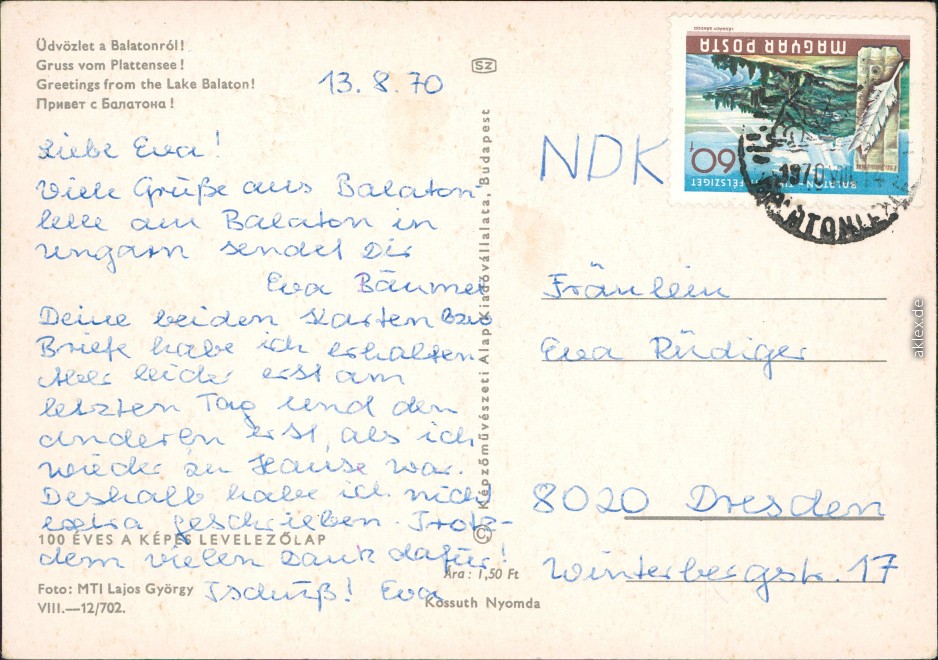 Üdvözlet a Balatonról!
Gruss vom Plattensee!
Greetings from the Lake Balaton!
Привет с Балатона!
13.8.70
Liebe Eva!
Viele Grüße aus Balaton-
lelle am Balaton in
Ungarn sendet Dir
Eva Bäumel
Deine beiden Karten bzw.
Briefe habe ich erhalten
Aber leider erst am
letzten Tag und den
anderen erst, als ich
wieder zu Hause war.
Deshalb habe ich nicht
extra geschrieben. Trotz-
dem vielen Dank dafür!
Tschüß! Eva
100 ÉVES A KÉPES LEVELEZŐLAP
Foto: MTI Lajos György
VIII.—12/702.
Ára: 1,50 Ft
Kossuth Nyomda
SZ
© Képzőművészeti Alap Kiadóvállalata, Budapest
MAGYAR POSTA
60f
BALATON - FÉLSZIGET
1970 VIII
BALATONLE
NDK
Fräulein
Eva Rüdiger
8020 Dresden
Winterbergstr. 17
aklex.de